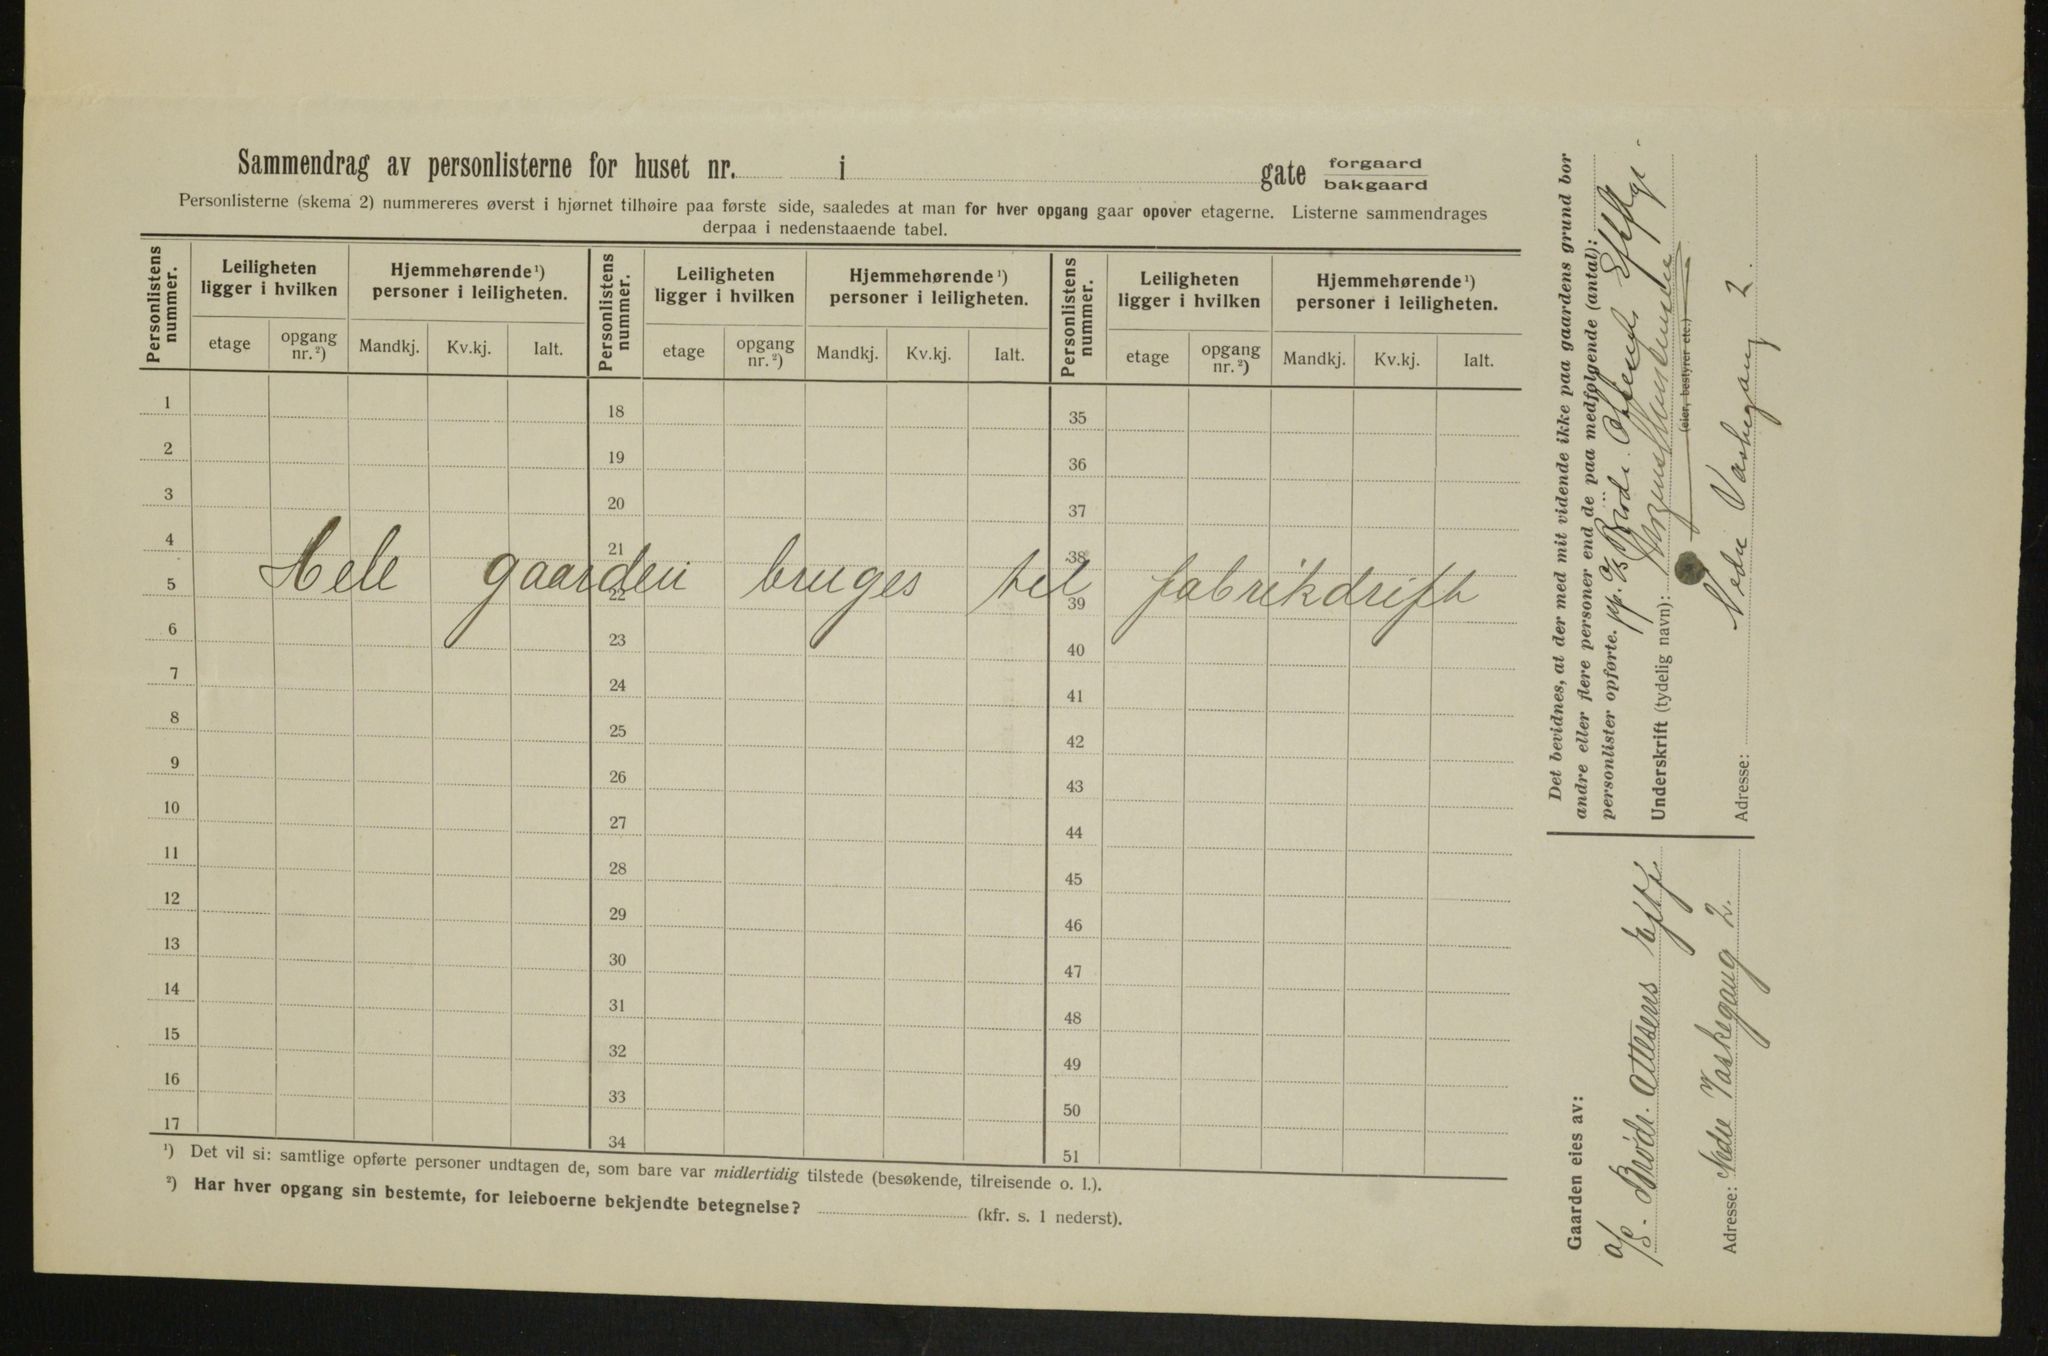 Sammendrag av personlisterne for huset nr. i gate forgaard
bakgaard
Personlisterne (skema 2) nummereres øverst i hjørnet tilhøire paa første side, saaledes at man for hver opgang gaar opover etagerne. Listerne sammendrages
derpaa i nedenstaaende tabel.
Personlistens nummer. Leiligheten ligger i hvilken Hjemmehørende ¹) personer i leiligheten. Personlistens nummer. Leiligheten ligger i hvilken Hjemmehørende ¹) personer i leiligheten. Personlistens nummer. Leiligheten ligger i hvilken Hjemmehørende ¹) personer i leiligheten.
etage opgang nr. ²) Mandkj. Kv.kj. Ialt. etage opgang nr. ²) Mandkj. Kv.kj. Ialt. etage opgang nr. ²) Mandkj. Kv.kj. Ialt.
1 18 35
2 19 36
3 20 37
4 21 38
Hele gaarden bruges til fabrikdrift
5 22 39
6 23 40
7 24 41
8 25 42
9 26 43
10 27 44
11 28 45
12 29 46
13 30 47
14 31 48
15 32 49
16 33 50
17 34 51
¹) Det vil si: samtlige opførte personer undtagen de, som bare var midlertidig tilstede (besøkende, tilreisende o. l.).
²) Har hver opgang sin bestemte, for leieboerne bekjendte betegnelse? (kfr. s. 1 nederst).
Det bevidnes, at der med mit vidende ikke paa gaardens grund bor
andre eller flere personer end de paa medfølgende (antal):
personlister opførte. pp. A/S Brødr.
Underskrift (tydelig navn):
(eier, bestyrer etc.)
Adresse: Nedre Vaskegang 2.
Gaarden eies av:
A/S. Brødr. Ottesens Eftf.
Adresse: Nedre Vaskegang 2.